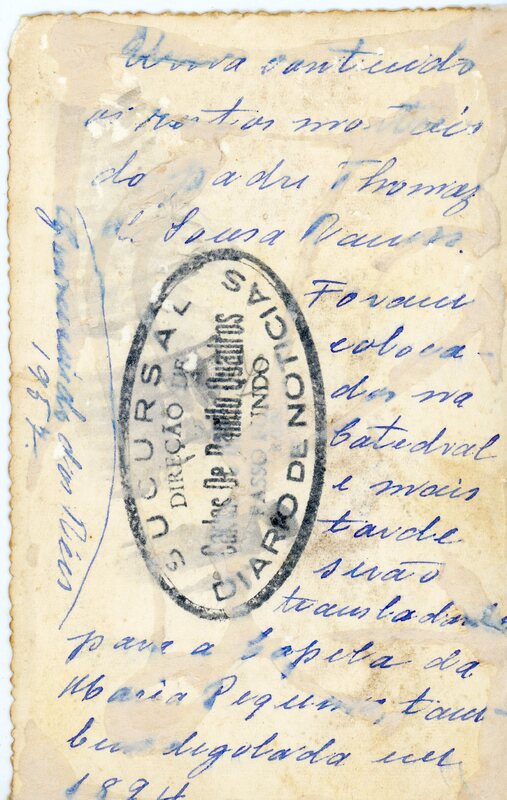 Urna contendo
os restos mortais
do Padre Thomaz
de Sousa Ramos.
Foram
coloca-
dos na
Catedral
e mais
tarde
serão
transladados
para a Capela da
Maria Pequena, tam-
bem degolada em
1894
SUCURSAL
DIREÇÃO DE
Carlos De Danilo Quadros
PASSO FUNDO
DIARIO DE NOTICIAS
dos Reis
1957.